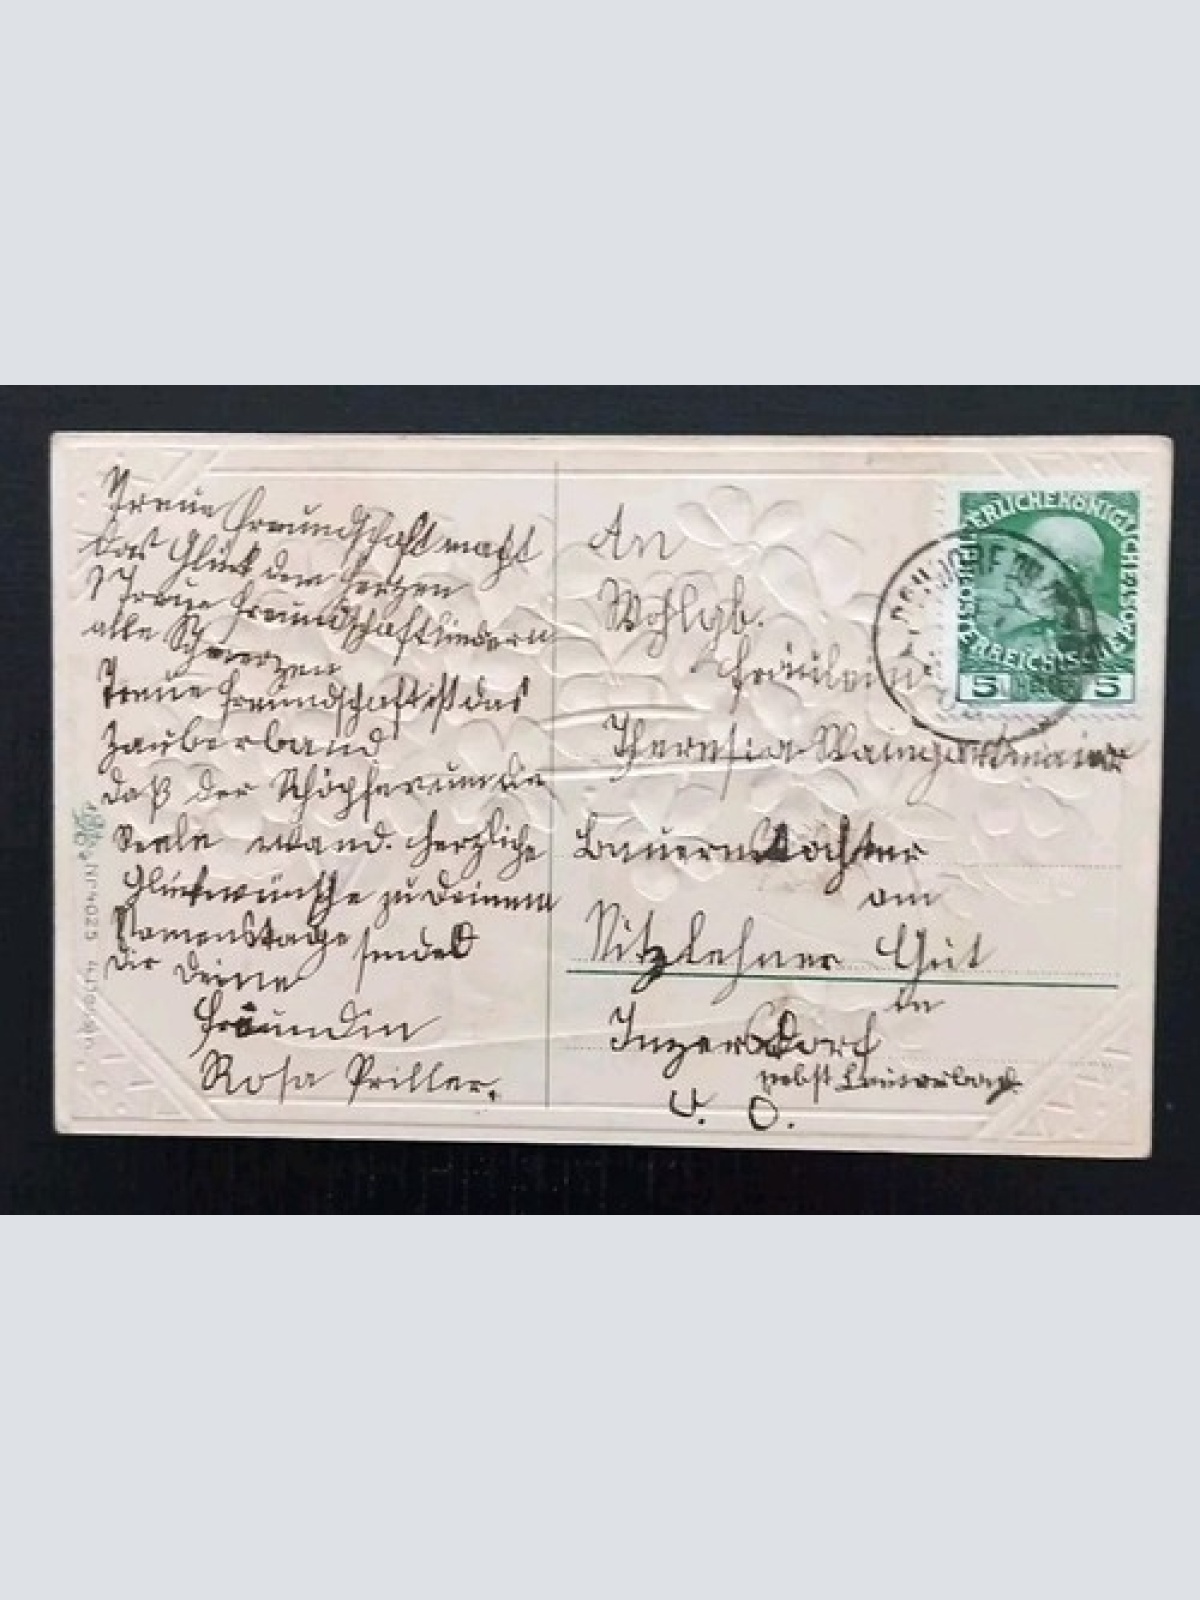 Treue Freundschaft macht
das Glück den Herzen
Treue Freundschaft lindern
alle Schmerzen
Treue Freundschaft ist das
Zauberband
daß der Schöpfer um die
Seele wand. Herzliche
Glückwünsche zu Deinem
Namenstage sendet
Dir Deine
Freundin
Rosa Priller.
Nr 4025
An
Wohlgb.
Fräulein
Theresia
Bauernstochter
am
Nitzlehner Gut
in
Inzersdorf
nebst Lauterbach
O.
KAISERLICHE KÖNIGLICHE ÖSTERREICHISCHE POST
5 HELLER 5